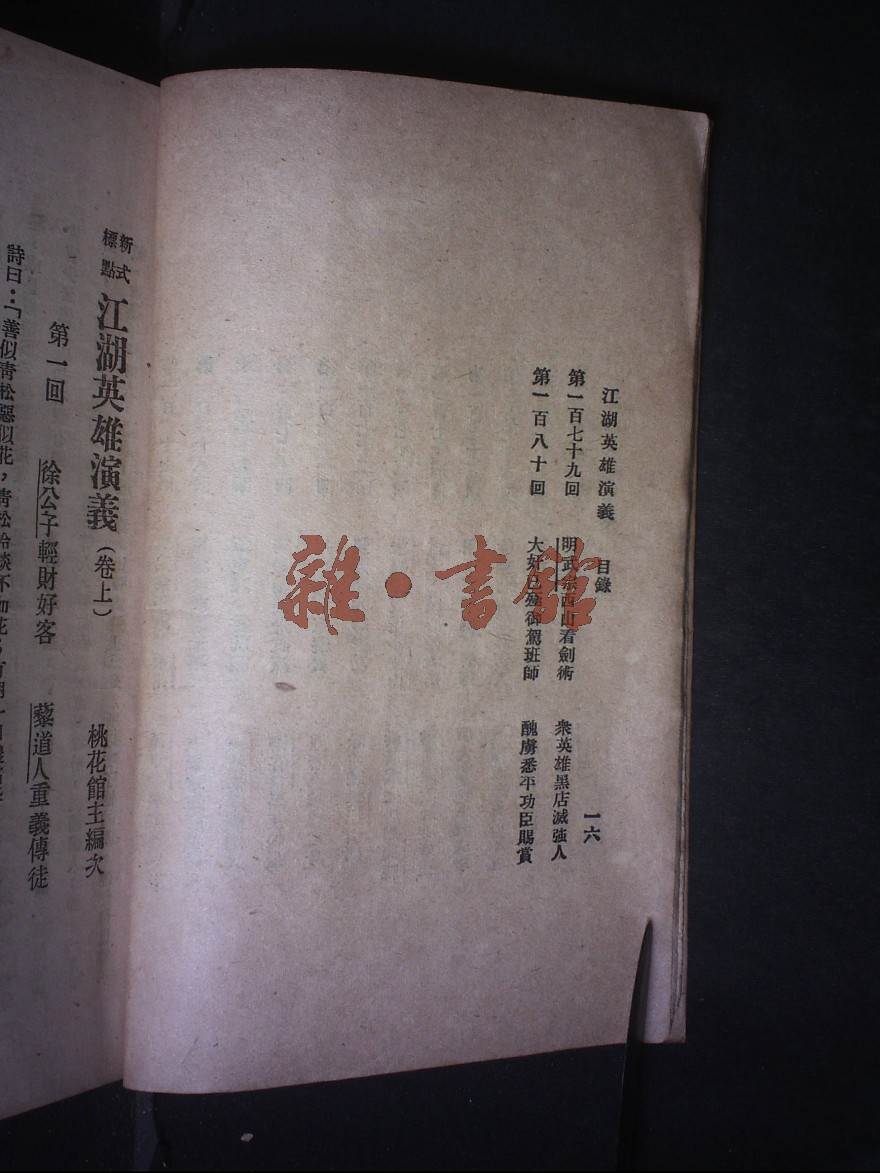 江湖英雄演義 目錄 一六
第一百七十九回 明武宗西山看劍術 衆英雄黑店滅強人
第一百八十回 大奸已殛御駕班師 醜虜悉平功臣賜賞
雜·書館
新式標點 江湖英雄演義(卷上) 桃花館主編次
第一回 徐公子輕財好客 藜道人重義傳徒
詩曰:「善似靑松惡似花,靑松冷淡不如花,有朝一日